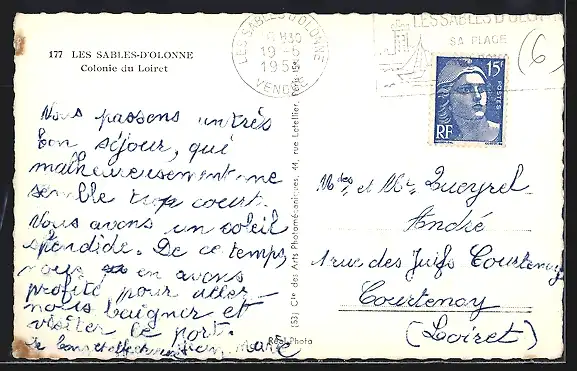 177 LES SABLES-D'OLONNE
Colonie du Loiret
Nous passons un très
bon séjour, qui
malheureusement me
semble trop court.
Nous avons un soleil
splendide. De ce temps,
nous en avons
profité pour aller
nous baigner et
visiter le port.
De bons et
Marie
(53) Cie des Arts Photomécaniques, 44, rue Letellier, Paris-15e
Réel-Photo
LES SABLES D'OLONNE
19-6
195
VENDÉE
LES SABLES D'OLONNE
SA PLAGE
(6)
15f
POSTES
RF
Mdes et Mr Queyrel
André
1 rue des Juifs Courtenay
Courtenay
(Loiret)